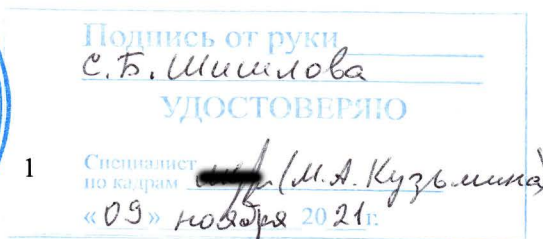 Подпись от руки
С.Б. Шишлова
УДОСТОВЕРЯЮ
1
Специалист
по кадрам (М.А. Кузьмина)
«09» ноября 2021г.